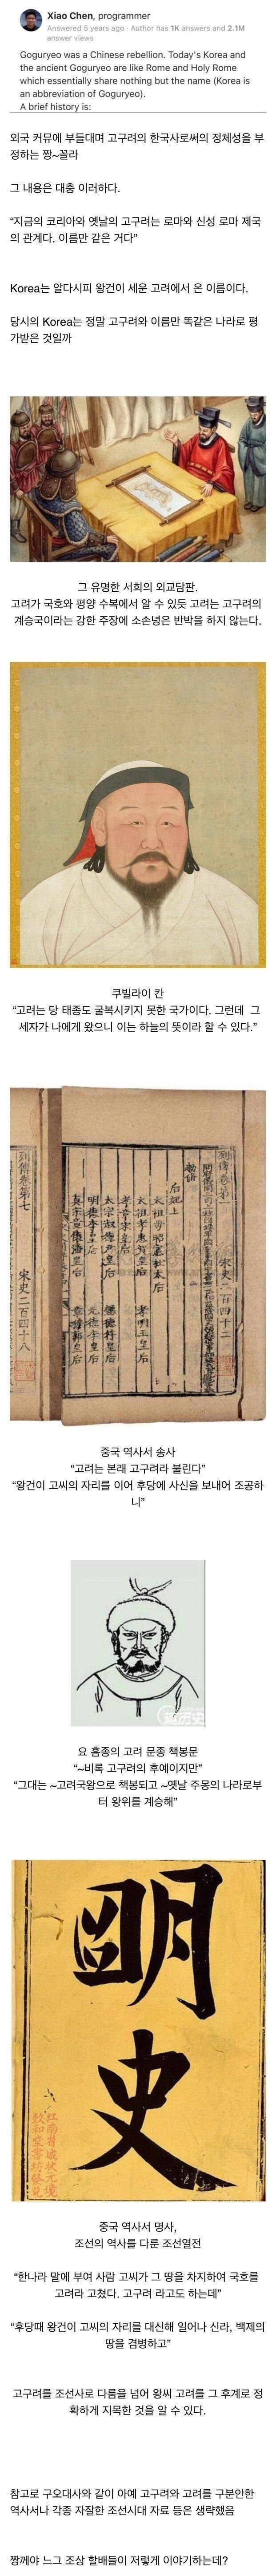 Xiao Chen, programmer
Answered 5 years ago · Author has 1K answers and 2.1M
answer views
Goguryeo was a Chinese rebellion. Today's Korea and
the ancient Goguryeo are like Rome and Holy Rome
which essentially share nothing but the name (Korea is
an abbreviation of Goguryeo).
A brief history is:
외국 커뮤에 부들대며 고구려의 한국사로써의 정체성을 부
정하는 짱~꼴라
그 내용은 대충 이러하다.
“지금의 코리아와 옛날의 고구려는 로마와 신성 로마 제국
의 관계다. 이름만 같은 거다”
Korea는 알다시피 왕건이 세운 고려에서 온 이름이다.
당시의 Korea는 정말 고구려와 이름만 똑같은 나라로 평
가받은 것일까
그 유명한 서희의 외교담판.
고려가 국호와 평양 수복에서 알 수 있듯 고려는 고구려의
계승국이라는 강한 주장에 소손녕은 반박을 하지 않는다.
쿠빌라이 칸
“고려는 당 태종도 굴복시키지 못한 국가이다. 그런데 그
세자가 나에게 왔으니 이는 하늘의 뜻이라 할 수 있다.”
列傳卷第七
宋史二百四十八
后妃上
宋史二百四十二
중국 역사서 송사
“고려는 본래 고구려라 불린다”
“왕건이 고씨의 자리를 이어 후당에 사신을 보내어 조공하
니”
趣历史
요 흥종의 고려 문종 책봉문
“~비록 고구려의 후예이지만”
“그대는 ~고려국왕으로 책봉되고 ~옛날 주몽의 나라로부
터 왕위를 계승해”
明
史
중국 역사서 명사,
조선의 역사를 다룬 조선열전
“한나라 말에 부여 사람 고씨가 그 땅을 차지하여 국호를
고려라 고쳤다. 고구려 라고도 하는데”
“후당때 왕건이 고씨의 자리를 대신해 일어나 신라, 백제의
땅을 겸병하고”
고구려를 조선사로 다룸을 넘어 왕씨 고려를 그 후계로 정
확하게 지목한 것을 알 수 있다.
참고로 구오대사와 같이 아예 고구려와 고려를 구분안한
역사서나 각종 자잘한 조선시대 자료 등은 생략했음
짱께야 느그 조상 할배들이 저렇게 이야기하는데?